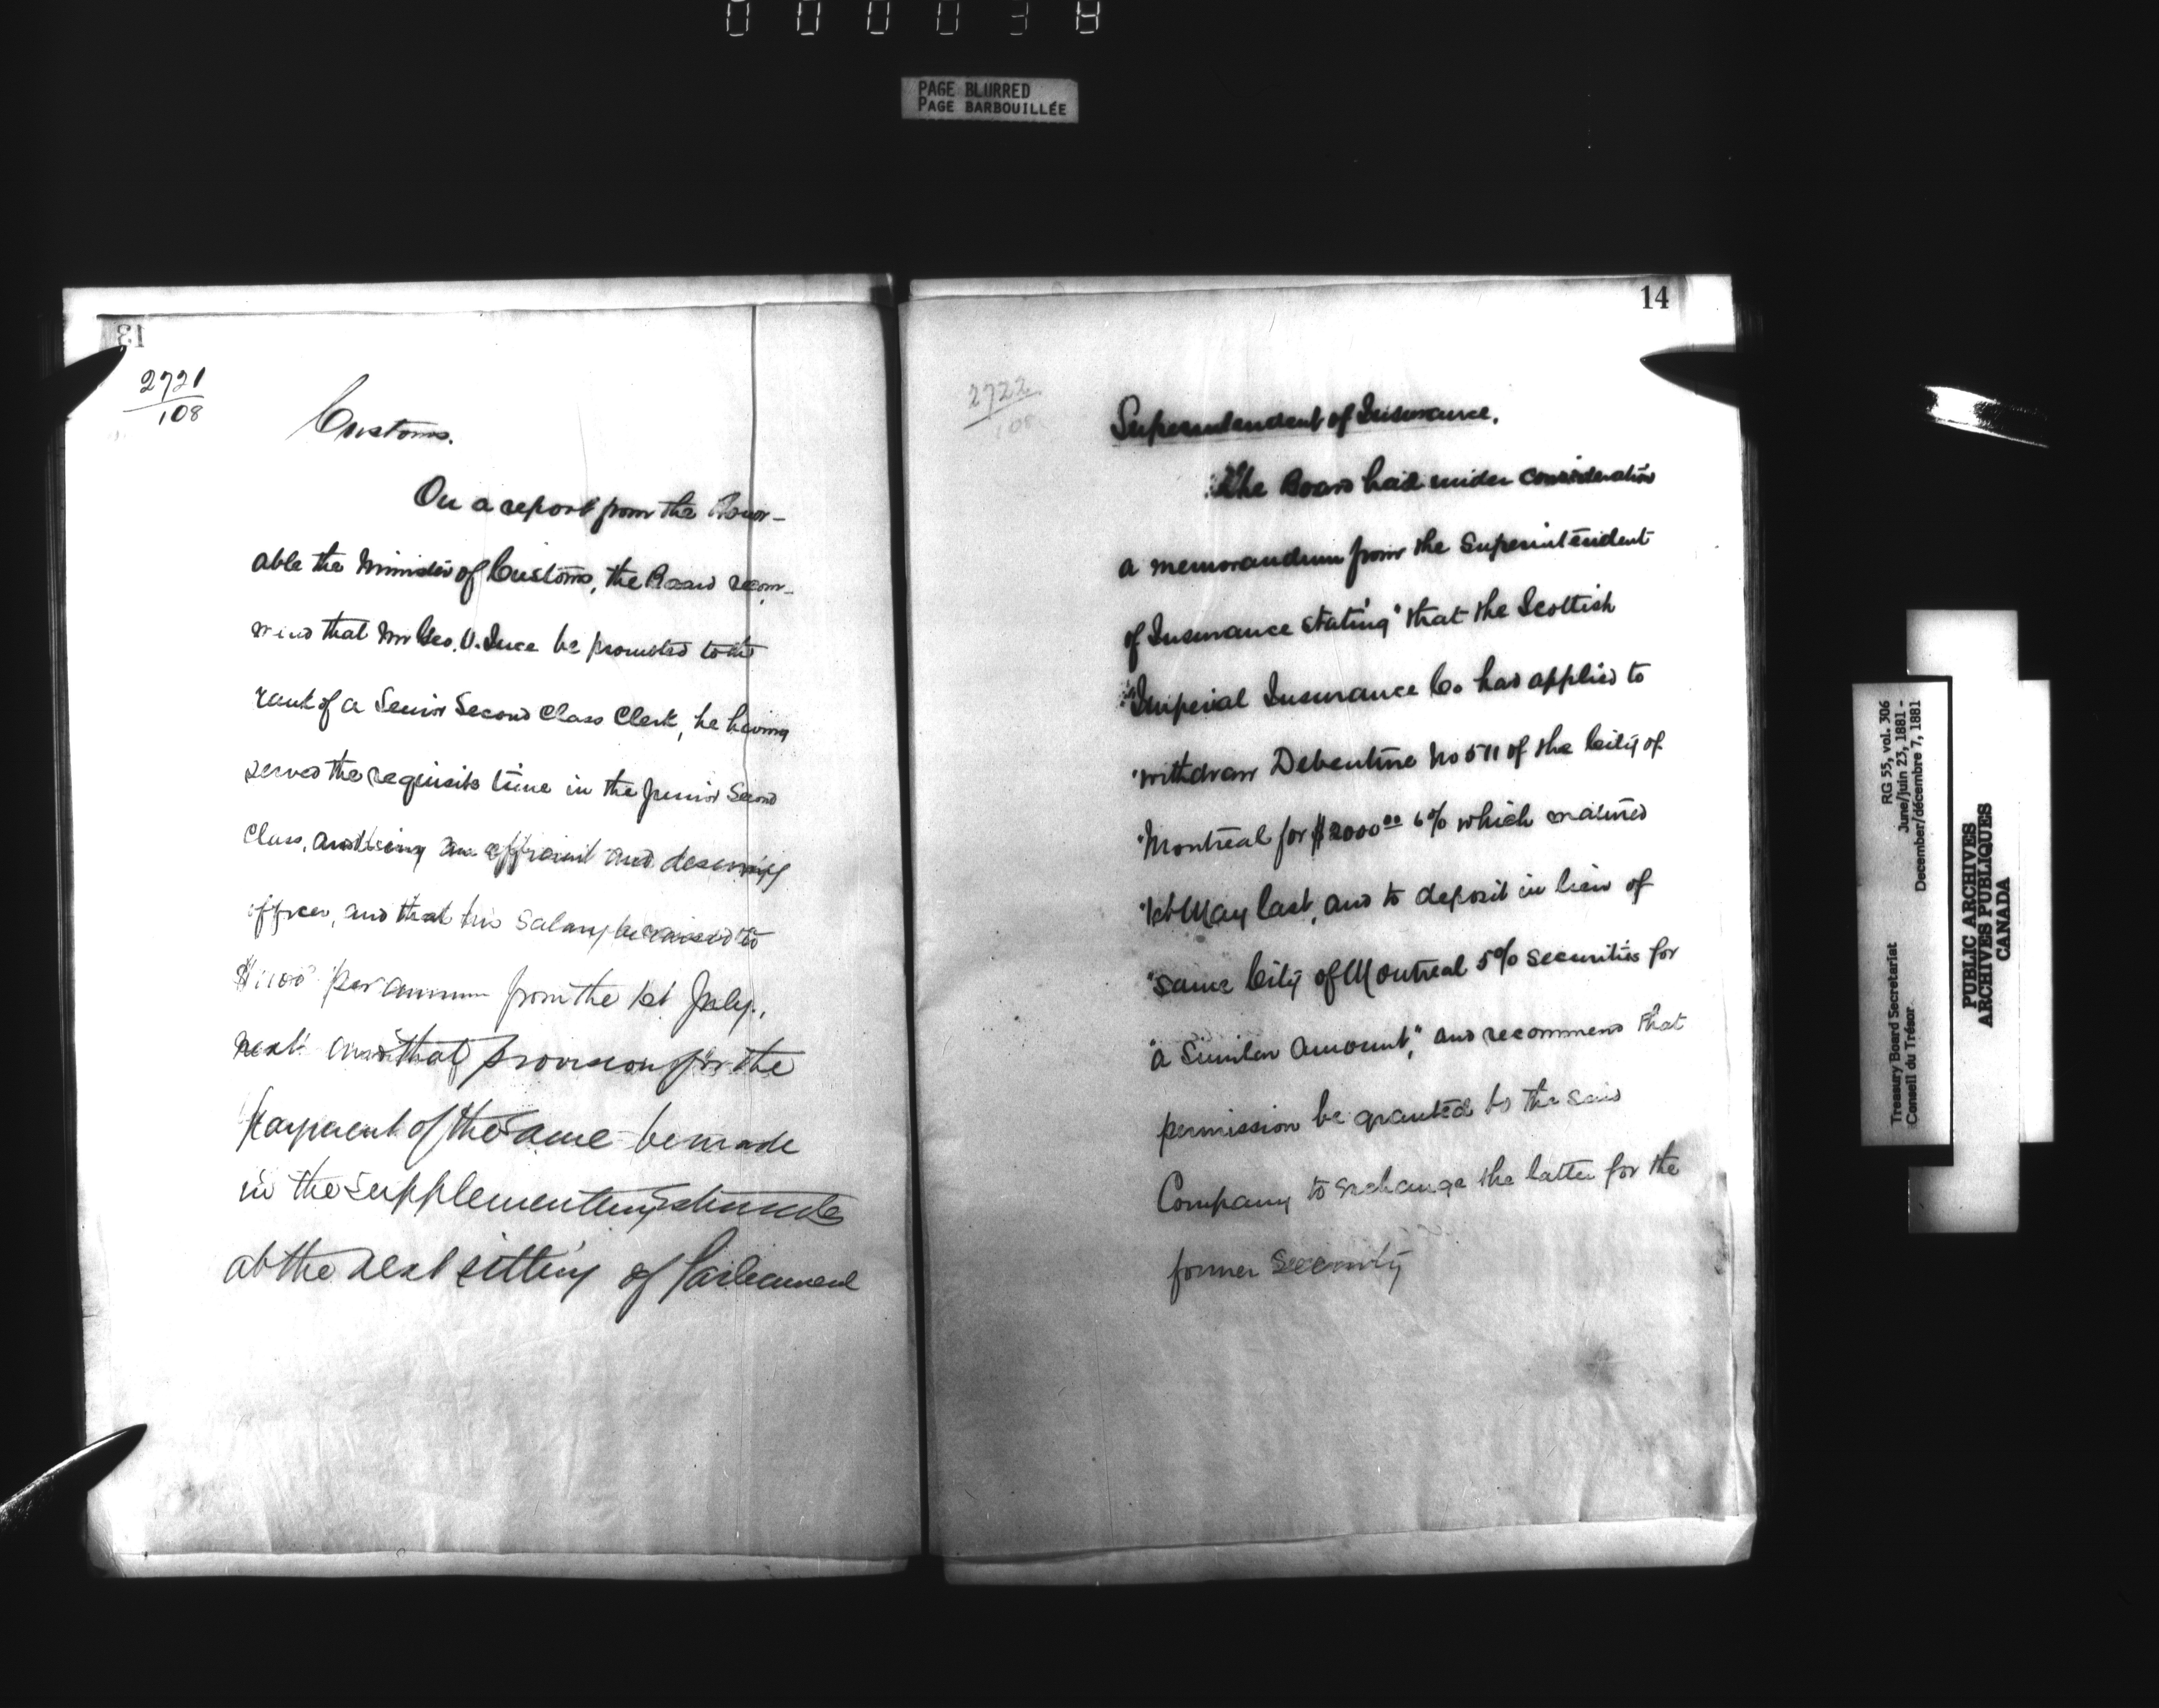 PAGE BLURRED
PAGE BARBOUILLÉE
13
2721
108
Customs.
On a report from the Honor-
able the Minister of Customs, the Board recom-
mend that Mr Geo. V. Ince be promoted to the
rank of a Senior Second Class Clerk, he having
served the requisite time in the Junior Second
Class, and being an efficient and deserving
officer, and that his salary be raised to
$1100 per annum from the 1st July,
next and that provision for the
payment of the same be made
in the Supplementary Estimates
at the next sitting of Parliament
14
2722
108
Superintendent of Insurance.
The Board had under consideration
a memorandum from the Superintendent
of Insurance stating "that the Scottish
"Imperial Insurance Co. has applied to
"withdraw Debenture No 511 of the City of
"Montreal for $2000.00 6% which matured
"1st May last, and to deposit in lieu of
"same City of Montreal 5% securities for
"a similar amount," and recommend that
permission be granted to the said
Company to exchange the latter for the
former Security
Treasury Board Secretariat
Conseil du Trésor
RG 55, vol. 306
June/juin 23, 1881 -
December/décembre 7, 1881
PUBLIC ARCHIVES
ARCHIVES PUBLIQUES
CANADA